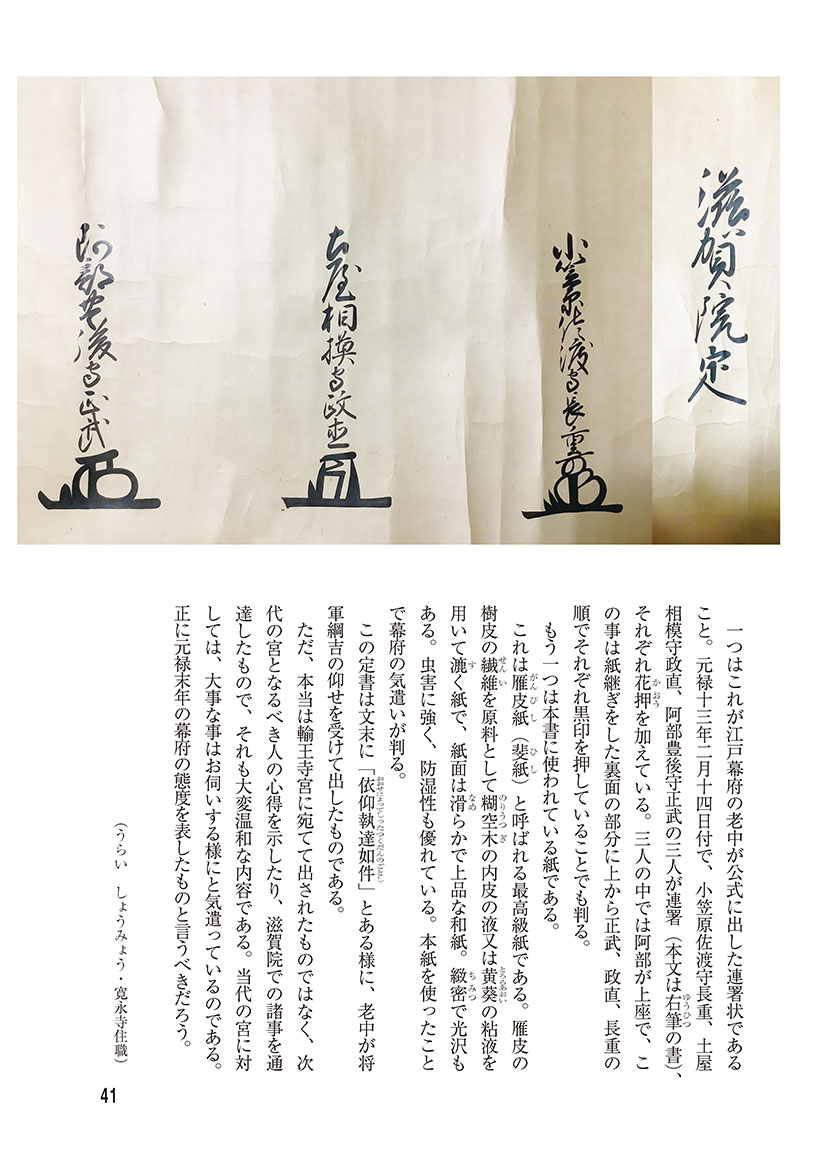 滋賀院定
小笠原佐渡守長重
土屋相模守政直
阿部豊後守正武
一つはこれが江戸幕府の老中が公式に出した連署状である
こと。元禄十三年二月十四日付で、小笠原佐渡守長重、土屋
相模守政直、阿部豊後守正武の三人が連署（本文は右筆の書）、
それぞれ花押を加えている。三人の中では阿部が上座で、こ
の事は紙継ぎをした裏面の部分に上から正武、政直、長重の
順でそれぞれ黒印を押していることでも判る。
もう一つは本書に使われている紙である。
これは雁皮紙（斐紙）と呼ばれる最高級紙である。雁皮の
樹皮の繊維を原料として糊空木の内皮の液又は黄葵の粘液を
用いて漉く紙で、紙面は滑らかで上品な和紙。緻密で光沢も
ある。虫害に強く、防湿性も優れている。本紙を使ったこと
で幕府の気遣いが判る。
この定書は文末に「依仰執達如件」とある様に、老中が将
軍綱吉の仰せを受けて出したものである。
ただ、本当は輪王寺宮に宛てて出されたものではなく、次
代の宮となるべき人の心得を示したり、滋賀院での諸事を通
達したもので、それも大変温和な内容である。当代の宮に対
しては、大事な事はお伺いする様にと気遣っているのである。
正に元禄末年の幕府の態度を表したものと言うべきだろう。
（うらい　しょうみょう・寛永寺住職）
41